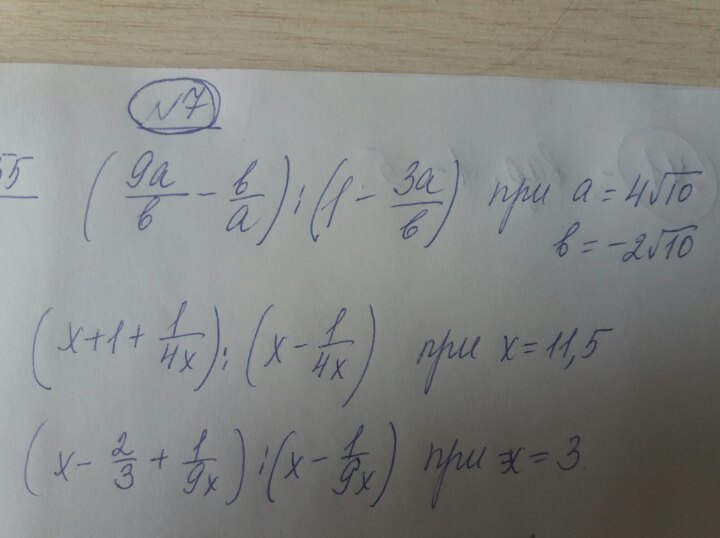 №7
55 (9a/b − b/a) : (1 − 3a/b) при a = 4√10
b = −2√10
(x+1+ 1/4x) : (x − 1/4x) при x = 11,5
(x − 2/3 + 1/9x) : (x − 1/9x) при x = 3